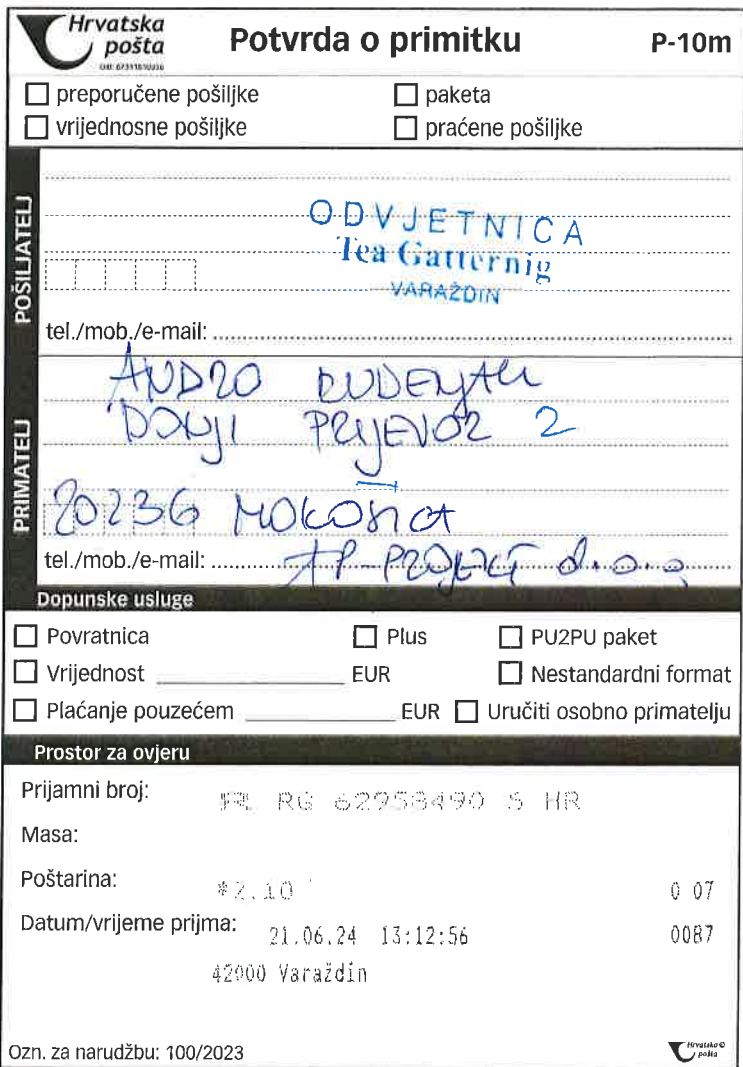 Hrvatska
pošta
Potvrda o primitku
P-10m
preporučene pošiljke
paketa
vrijednosne pošiljke
praćene pošiljke
POŠILJATELJ
ODVJETNICA
Tea Gatternig
VARAŽDIN
tel./mob./e-mail:
PRIMATELJ
ANDRO
DONJI PRIJEVOR 2
20236 MOKOŠICA
tel./mob./e-mail: PROJEKT d.o.o.
Dopunske usluge
Povratnica
Plus
PU2PU paket
Vrijednost EUR
Nestandardni format
Plaćanje pouzećem EUR
Uručiti osobno primatelju
Prostor za ovjeru
Prijamni broj: RG 62958490 5 HR
Masa:
Poštarina: *2.10 0 07
Datum/vrijeme prijma: 21.06.24 13:12:56 0087
42000 Varaždin
Ozn. za narudžbu: 100/2023
Hrvatska
pošta